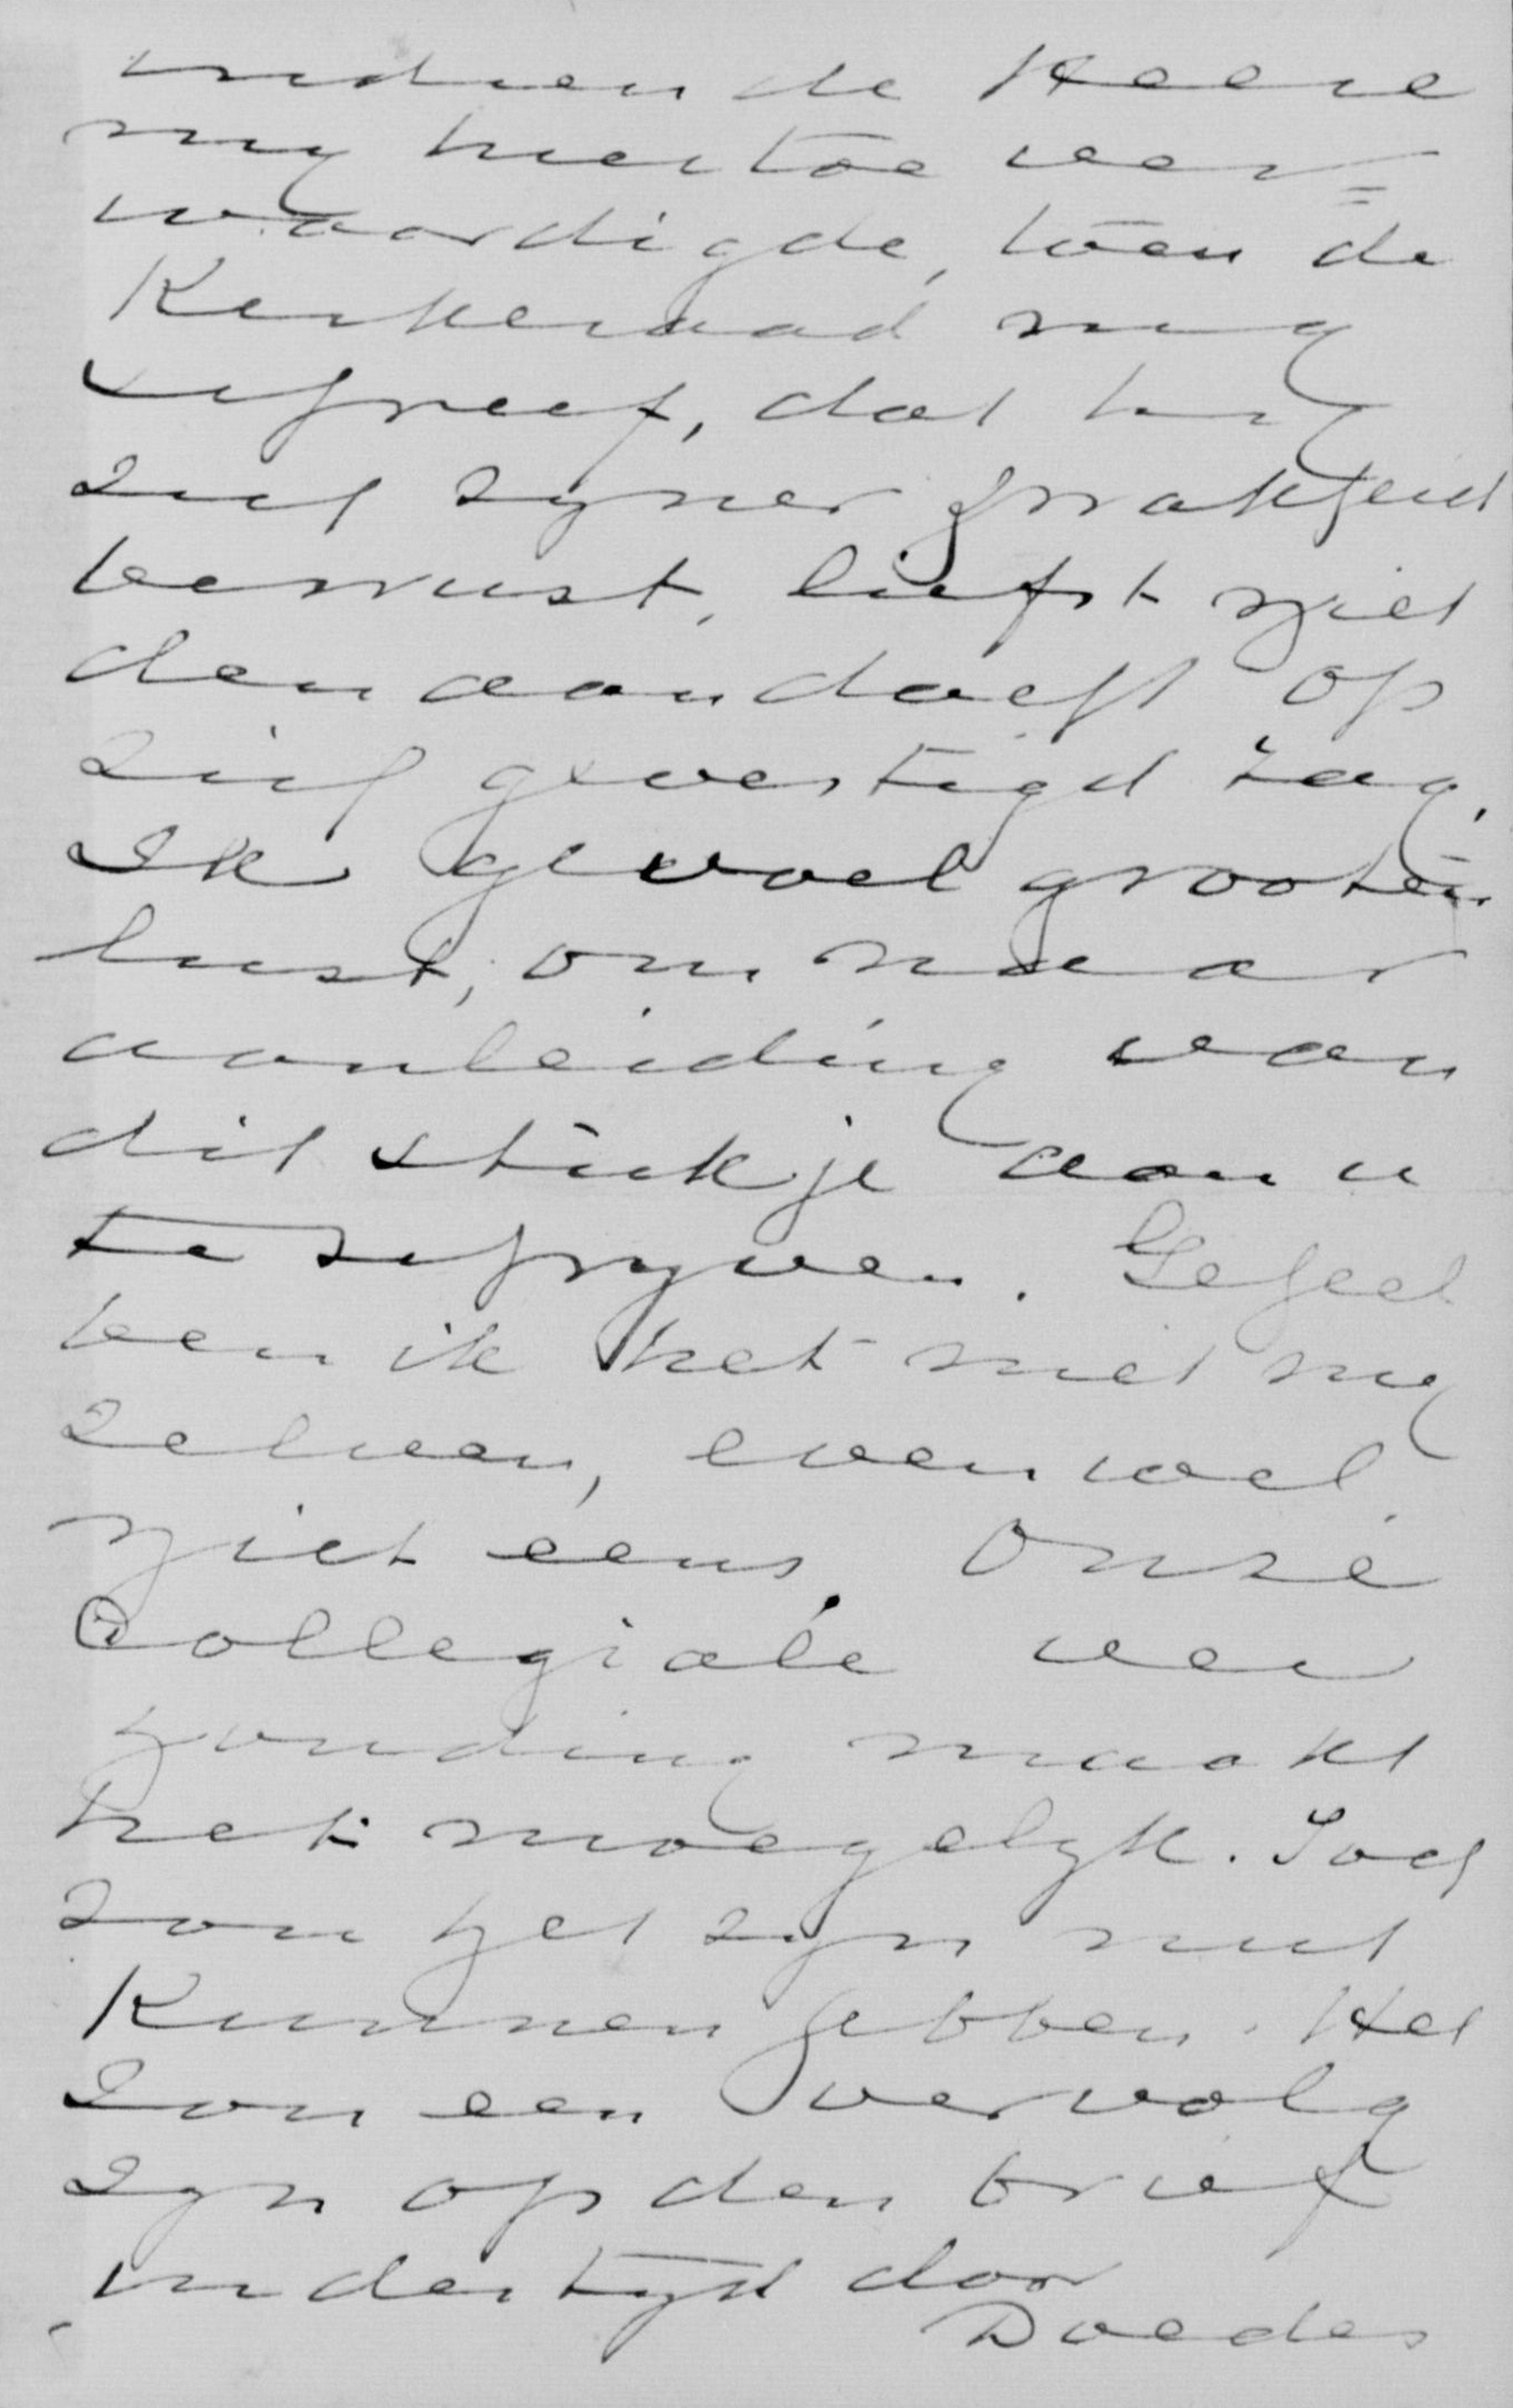 indien de Heere
my hiertoe ver=
waardigde, toen de
Kerkeraad my
schreef, dat hy
zich zyner zwakheid
bewust, liefst niet
den aandacht op
zich gevestigd zag.
Ik gevoel grooten
lust, om naar
aanleiding van
dit stukje aan u
te schryven. Geheel
ben ik het met my
zelven, evenwel
niet eens. Onze
Collegiale ver
houding maakt
het moegelyk. Toch
zou het zyn nut
Kunnen hebben. Het
zou een vervolg
zyn op den brief
indertyd door
Doedes